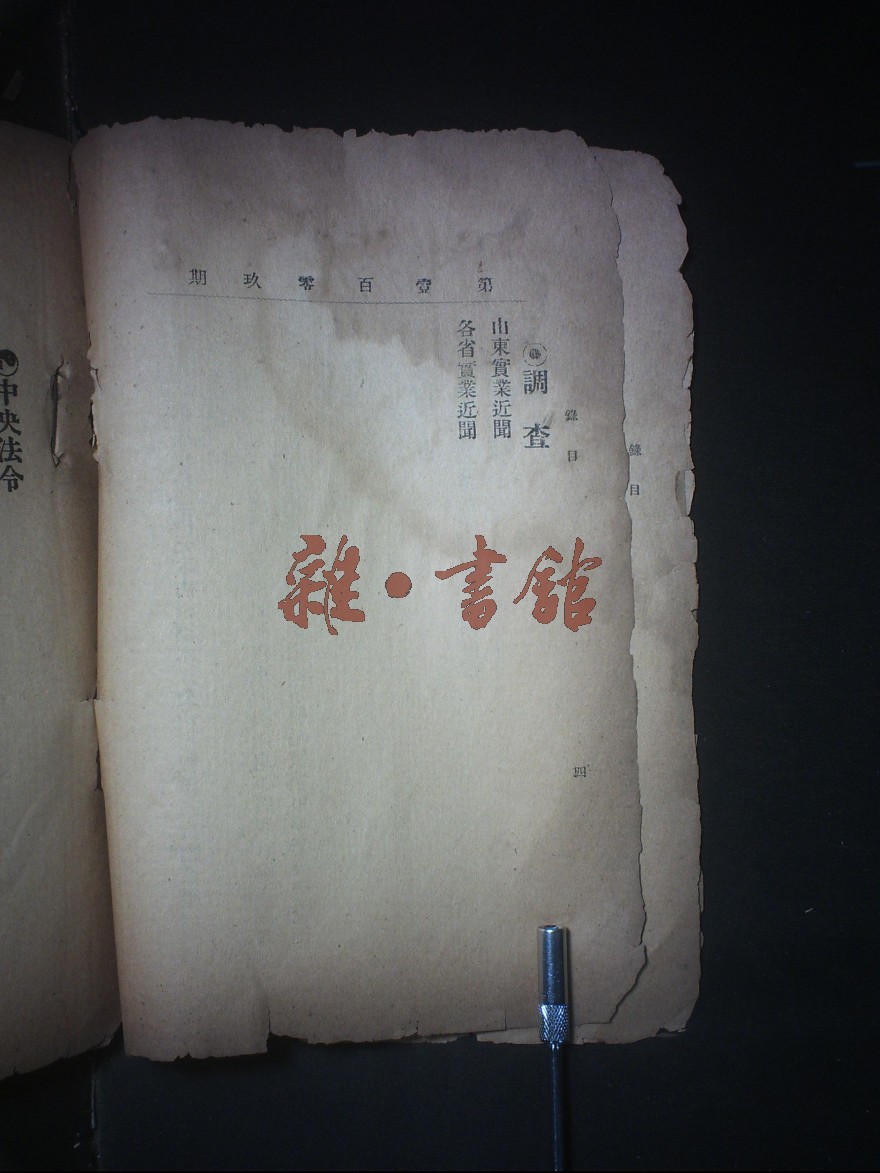 第壹百零玖期
錄目
錄目
四
調查
山東實業近聞
各省實業近聞
中央法令
雜•書館